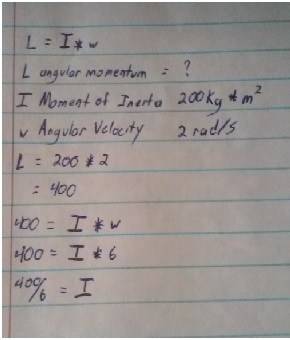 L = I * w
L angular momentum = ?
I Moment of Inerta 200Kg * m²
w Angular Velocity 2 rad/s
L = 200 * 2
= 400
400 = I * w
400 = I * 6
400/6 = I